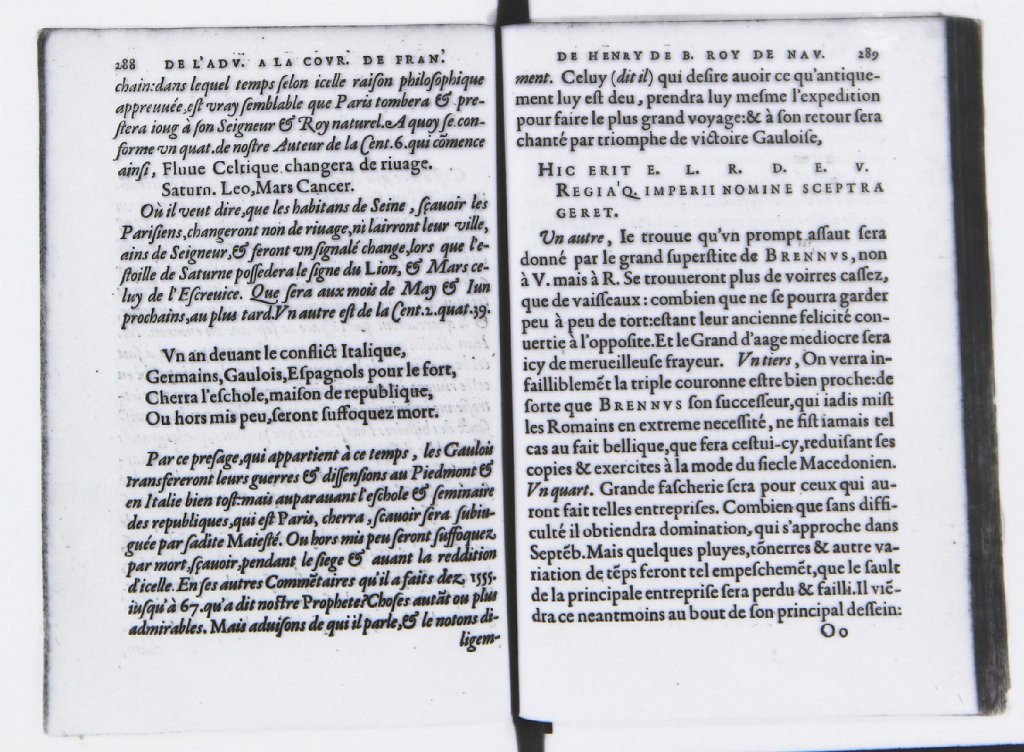 288 DE L'ADV. A LA COVR. DE FRAN.
chain: dans lequel temps ſelon icelle raiſon philoſophique
appreuuée, eſt vray ſemblable que Paris tombera & pre-
ſtera ioug à ſon Seigneur & Roy naturel. A quoy ſe con-
forme vn quat. de noſtre Auteur de la Cent. 6. qui cõmence
ainſi, Fluue Celtique changera de riuage.
Saturn. Leo, Mars Cancer.
Où il veut dire, que les habitans de Seine, ſçauoir les
Pariſiens, changeront non de riuage, ni lairront leur ville,
ains de Seigneur, & feront vn ſignalé change, lors que l'e-
ſtoille de Saturne poſſedera le ſigne du Lion, & Mars ce-
luy de l'Eſcreuice. Que ſera aux mois de May & Iun
prochains, au plus tard. Vn autre eſt de la Cent. 2. quat. 39.
Vn an deuant le conflict Italique,
Germains, Gaulois, Eſpagnols pour le fort,
Cherra l'eſchole, maiſon de republique,
Ou hors mis peu, ſeront ſuffoquez mort.
Par ce preſage, qui appartient à ce temps, les Gaulois
transfereront leurs guerres & diſſenſions au Piedmont &
en Italie bien toſt: mais auparauant l'eſchole & ſeminaire
des republiques, qui eſt Paris, cherra, ſçauoir ſera ſubiu-
guée par ſadite Maieſté. Ou hors mis peu ſeront ſuffoquez
par mort, ſçauoir, pendant le ſiege & auant la reddition
d'icelle. En ſes autres Commẽtaires qu'il a faits dez 1555.
iuſqu'à 67. qu'a dit noſtre Prophete? Choſes autãt ou plus
admirables. Mais aduiſons de qui il parle, & le notons di-
ligem-
DE HENRY DE B. ROY DE NAV. 289
ment. Celuy (dit il) qui deſire auoir ce qu'antique-
ment luy eſt deu, prendra luy meſme l'expedition
pour faire le plus grand voyage: & à ſon retour ſera
chanté par triomphe de victoire Gauloiſe,
HIC ERIT E. L. R. D. E. V.
REGIA'Q. IMPERII NOMINE SCEPTRA
GERET.
Vn autre, Ie trouue qu'vn prompt aſſaut ſera
donné par le grand ſuperſtite de BRENNVS, non
à V. mais à R. Se trouueront plus de voirres caſſez,
que de vaiſſeaux: combien que ne ſe pourra garder
peu à peu de tort: eſtant leur ancienne felicité con-
uertie à l'oppoſite. Et le Grand d'aage mediocre ſera
icy de merueilleuſe frayeur. Vn tiers, On verra in-
failliblemẽt la triple couronne eſtre bien proche: de
ſorte que BRENNVS ſon ſucceſſeur, qui iadis miſt
les Romains en extreme neceſſité, ne fiſt iamais tel
cas au fait bellique, que fera ceſtui-cy, reduiſant ſes
copies & exercites à la mode du ſiecle Macedonien.
Vn quart. Grande faſcherie ſera pour ceux qui au-
ront fait telles entrepriſes. Combien que ſans diffi-
culté il obtiendra domination, qui s'approche dans
Septẽb. Mais quelques pluyes, tõnerres & autre va-
riation de tẽps feront tel empeſchemẽt, que le ſault
de la principale entrepriſe ſera perdu & failli. Il viẽ-
dra ce neantmoins au bout de ſon principal deſſein:
Oo